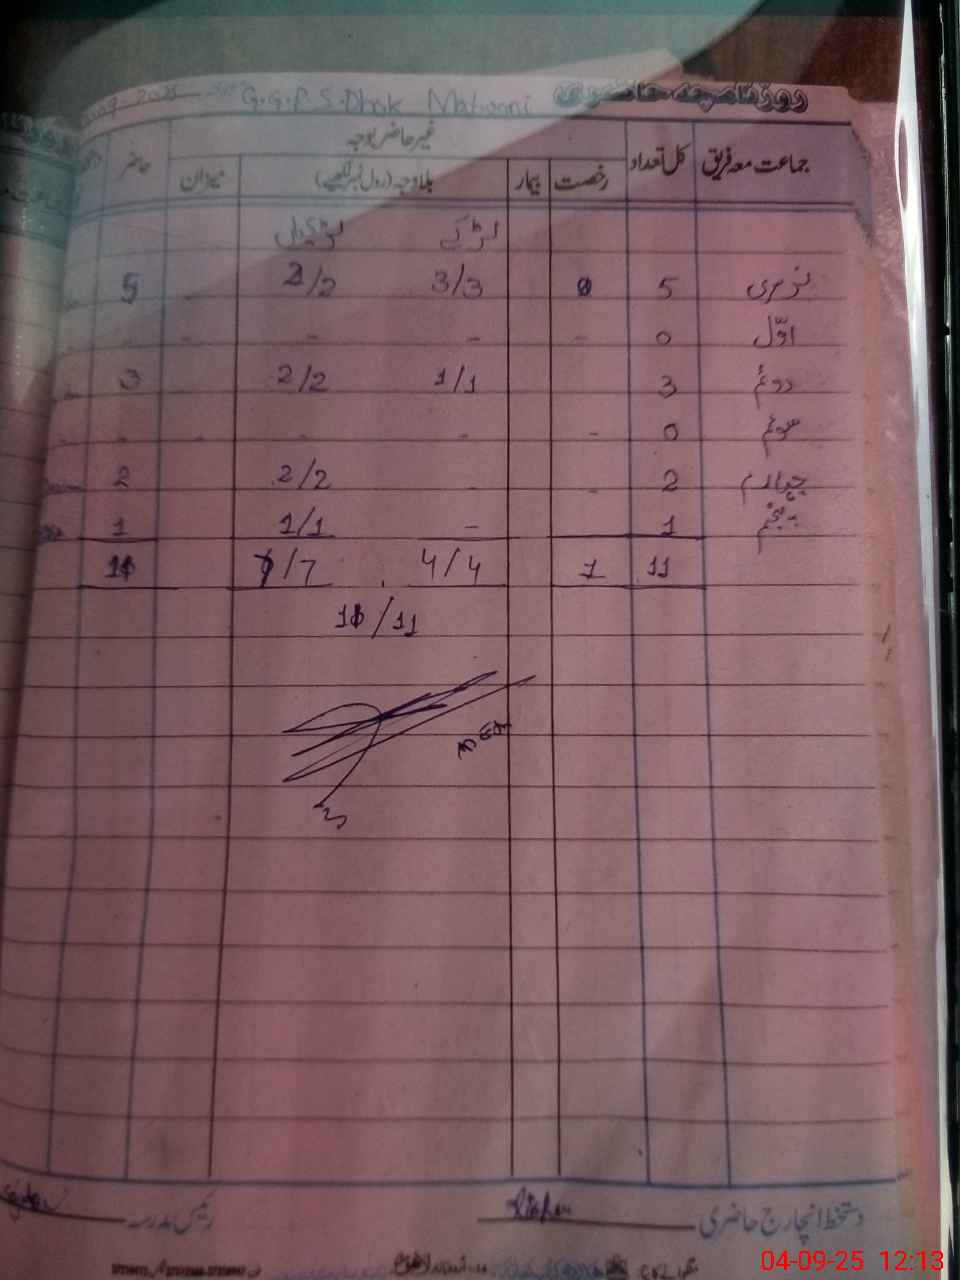 G.G.P.S. Dhok Mahanni روزنامچہ حاضری
جماعت معہ فریق کل تعداد غیر حاضر بوجہ حاضر
رخصت بیمار بلاوجہ (رول نمبر لکھیے) میزان
لڑکے لڑکیاں
نرسری 5 3/3 2/2 5
اوّل 0 - - - - -
دوئم 3 1/1 2/2 3
سوئم 0 - - - - -
چہارم 2 - - 2/2 2
پنجم 1 - 1/1 1
11 1 4/4 7/7 11
11/11
AEO
دستخط انچارج حاضری رئیس مدرسہ
04-09-25 12:13